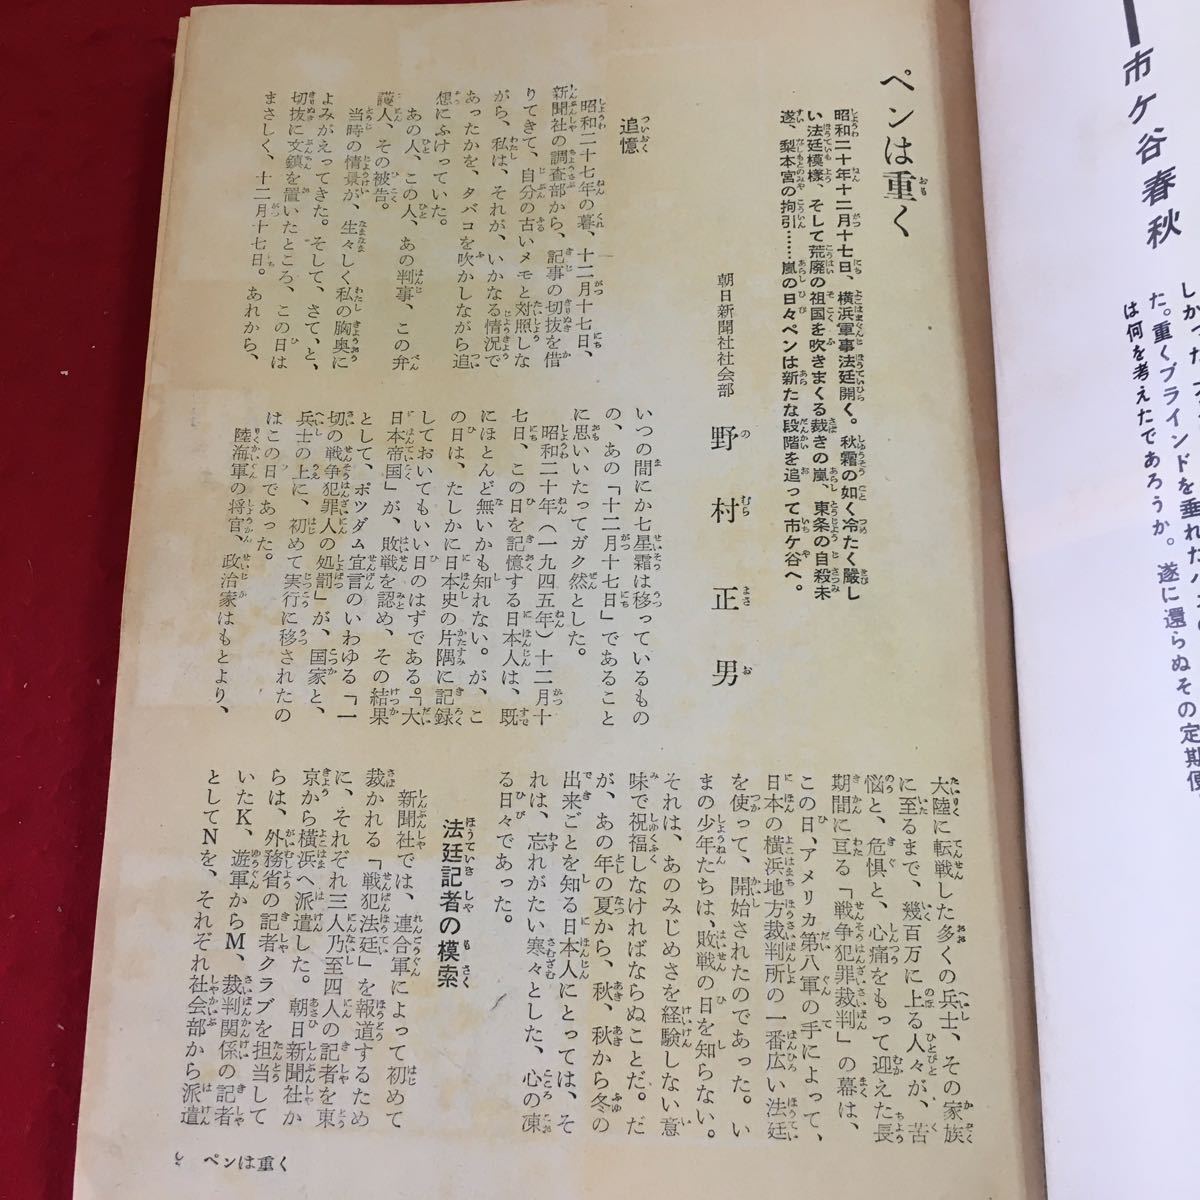 市ケ谷春秋
た。重くブラインドを垂れた
は何を考えたであろうか。遂に還らぬその定期便
ペンは重く
昭和二十年十二月十七日、横浜軍事法廷開く。秋霜の如く冷たく厳し
い法廷模様、そして荒廃の祖国を吹きまくる裁きの嵐、東条の自殺未
遂、梨本宮の拘引……嵐の日々ペンは新たな段階を追って市ケ谷へ。
朝日新聞社社会部
野村正男
追憶
昭和二十七年の暮、十二月十七日、
新聞社の調査部から、記事の切抜を借
りてきて、自分の古いメモと対照しな
がら、私は、それが、いかなる情況で
あったかを、タバコを吹かしながら追
想にふけっていた。
あの人、この人、あの判事、この弁
護人、その被告。
当時の情景が、生々しく私の胸奥に
よみがえってきた。そして、さて、と、
切抜に文鎮を置いたところ、この日は
まさしく、十二月十七日。あれから、
いつの間にか七星霜は移っているもの
の、あの「十二月十七日」であること
に思いいたってガク然とした。
昭和二十年（一九四五年）十二月十
七日、この日を記憶する日本人は、既
にほとんど無いかも知れない。が、こ
の日は、たしかに日本史の片隅に記録
しておいてもいい日のはずである。「大
日本帝国」が、敗戦を認め、その結果
として、ポツダム宣言のいわゆる「一
切の戦争犯罪人の処罰」が、国家と、
兵士の上に、初めて実行に移されたの
はこの日であった。
陸海軍の将官、政治家はもとより、
大陸に転戦した多くの兵士、その家族
に至るまで、幾百万に上る人々が、苦
悩と、危惧と、心痛をもって迎えた長
期間に亘る「戦争犯罪裁判」の幕は、
この日、アメリカ第八軍の手によって、
日本の横浜地方裁判所の一番広い法廷
を使って、開始されたのであった。い
まの少年たちは、敗戦の日を知らない。
それは、あのみじめさを経験しない意
味で祝福しなければならぬことだ。だ
が、あの年の夏から、秋、秋から冬の
出来ごとを知る日本人にとっては、そ
れは、忘れがたい寒々とした、心の凍
る日々であった。
法廷記者の模索
新聞社では、連合軍によって初めて
裁かれる「戦犯法廷」を報道するため
に、それぞれ三人乃至四人の記者を東
京から横浜へ派遣した。朝日新聞社か
らは、外務省の記者クラブを担当して
いたK、遊軍からM、裁判関係の記者
としてNを、それぞれ社会部から派遣
ペンは重く